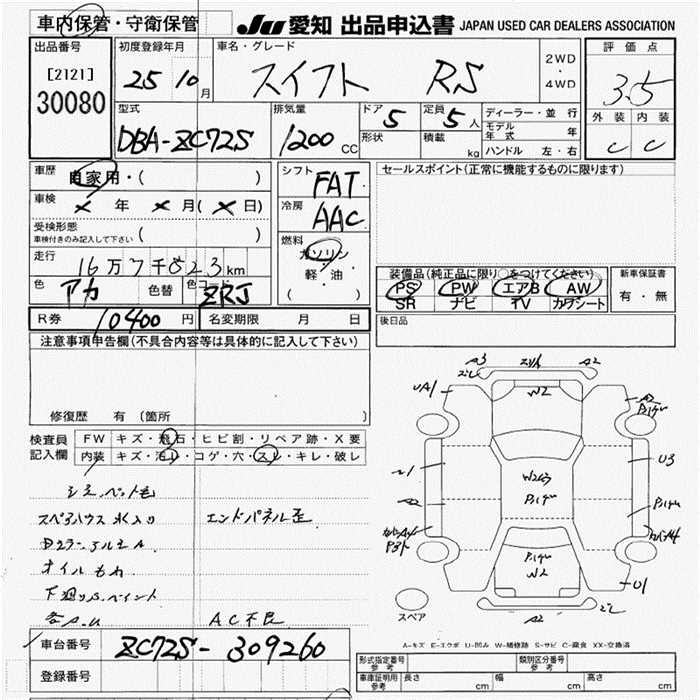 車内保管・守衛保管
JU 愛知 出品申込書 JAPAN USED CAR DEALERS ASSOCIATION
出品番号
[2121]
30080
初度登録年月
25 10月
車名・グレード
スイフト RS
2WD
・
4WD
評価点
3.5
外装 内装
C C
型式
DBA-ZC72S
排気量
1200 CC
ドア 5
形状
定員 5人
積載 kg
ディーラー・並行
モデル年式 年
ハンドル 左・右
車歴
自家用・( )
車検
× 年 × 月(× 日)
受検形態
車検付きのみ記入して下さい ( )
走行
16万7千823km
色 アカ 色替 色コード ZRJ
シフト FAT
冷房 AAC
燃料
ガソリン
軽・油
( )
セールスポイント(正常に機能するものに限ります)
装備品(純正品に限り○をつけてください)
PS PW エアB AW
SR ナビ TV カワシート
新車保証書
有・無
R券 10400円 名変期限 月 日
後日品
注意事項申告欄(不具合内容等は具体的に記入して下さい)
修復歴 有 (箇所
検査員
記入欄
FW キズ・飛石・ヒビ割・リペア跡・X要
内装 キズ・汚レ・コゲ・穴・スレ・キレ・破レ
スペアハウス水入り エンドパネル歪
オイルもれ
下廻りS.ペイント
AC不良
A3 スリキズ A2
UA1
W2
A2
Pいけい
U3
W2C3
Pいけい
A2
Pいけい
Pいけい
W2
U1
A2
スペア
A-キズ E-エクボ U-凹み W-補修跡 S-サビ C-腐食 XX-交換済
車台番号 ZC72S-309260
登録番号
形式指定番号
参考
類別区分番号
参考
車庫証明用
参考
長さ cm 幅 cm 高さ cm